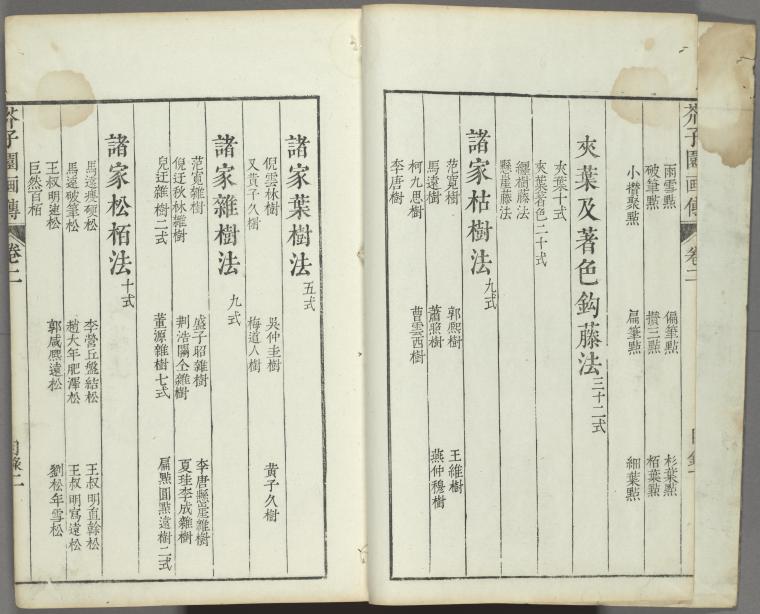 芥子園画傳 卷二
雨雪點 偏筆點 杉葉點
破筆點 攢三點 栢葉點
小攢聚點 扁筆點 細葉點
夾葉及著色鈎藤法三十二式
夾葉十式
夾葉著色二十式
纏樹藤法
懸崖藤法
諸家枯樹法九式
范寬樹 郭熙樹 王維樹
馬遠樹 蕭照樹 燕仲穆樹
柯九思樹 曹雲西樹
李唐樹
諸家葉樹法五式
倪雲林樹 吳仲圭樹 黃子久樹
又黃子久樹 梅道人樹
諸家雜樹法九式
范寬雜樹 盛子昭雜樹 李唐懸崖雜樹
倪迂秋林雜樹 荆浩關仝雜樹 夏珪李成雜樹
兒迂雜樹二式 董源雜樹七式 扁點圓點遠樹二式
諸家松栢法十式
馬遠瘦硬松 李營丘盤結松 王叔明直幹松
馬遠破筆松 趙大年肥澤松 王叔明寫遠松
王叔明建松 郭咸熙遠松 劉松年雪松
巨然百栢
芥子園画傳 卷二 目錄二